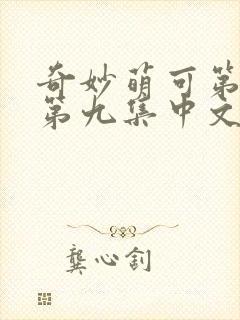 奇妙萌可第
第九集中文
龚心钊